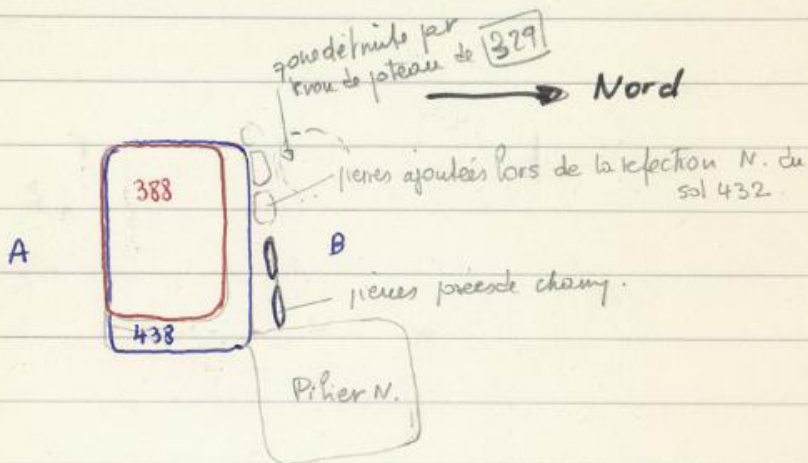 zone détruite par
trou de poteau de 329
Nord
388
pierres ajoutées lors de la refection N. du
sol 432
A
B
pierres posées de champ.
438
Pilier N.